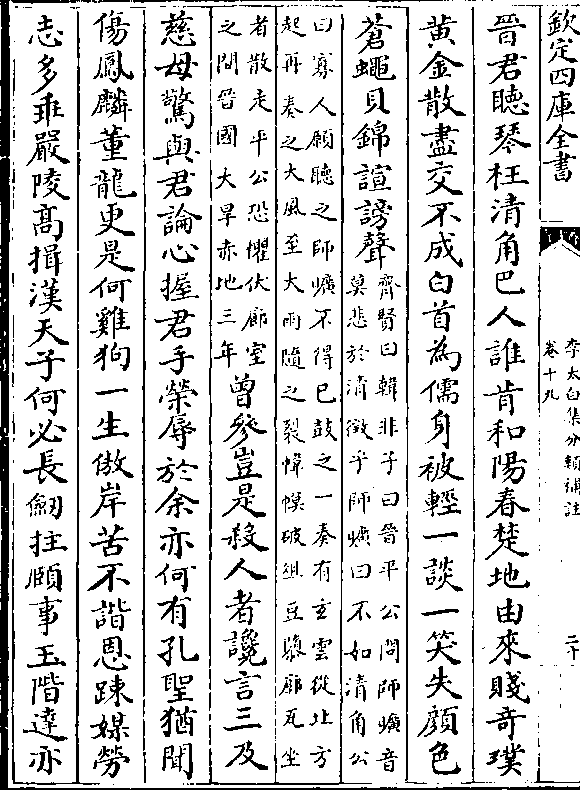 欽定四庫全書
李太白集分類補註
卷十九
二十
晉君聽琴枉清角巴人誰肯和陽春楚地由來賤奇璞
黃金散盡交不成白首為儒身被輕一談一笑失顏色
蒼蠅貝錦諠謗聲
齊賢曰韓非子曰晉平公問師曠音
莫悲於清徵乎師曠曰不如清角公
曰寡人願聽之師曠不得已鼓之一奏有玄雲從北方
起再奏之大風至大雨隨之裂幃幙破俎豆隳廊瓦坐
者散走平公恐懼伏廊室
之間晉國大旱赤地三年
曾參豈是殺人者讒言三及
慈母驚與君論心握君手榮辱於余亦何有孔聖猶聞
傷鳳麟董龍更是何雞狗一生傲岸苦不諧恩踈媒勞
志多乖嚴陵高揖漢天子何必長劒拄頤事玉階達亦